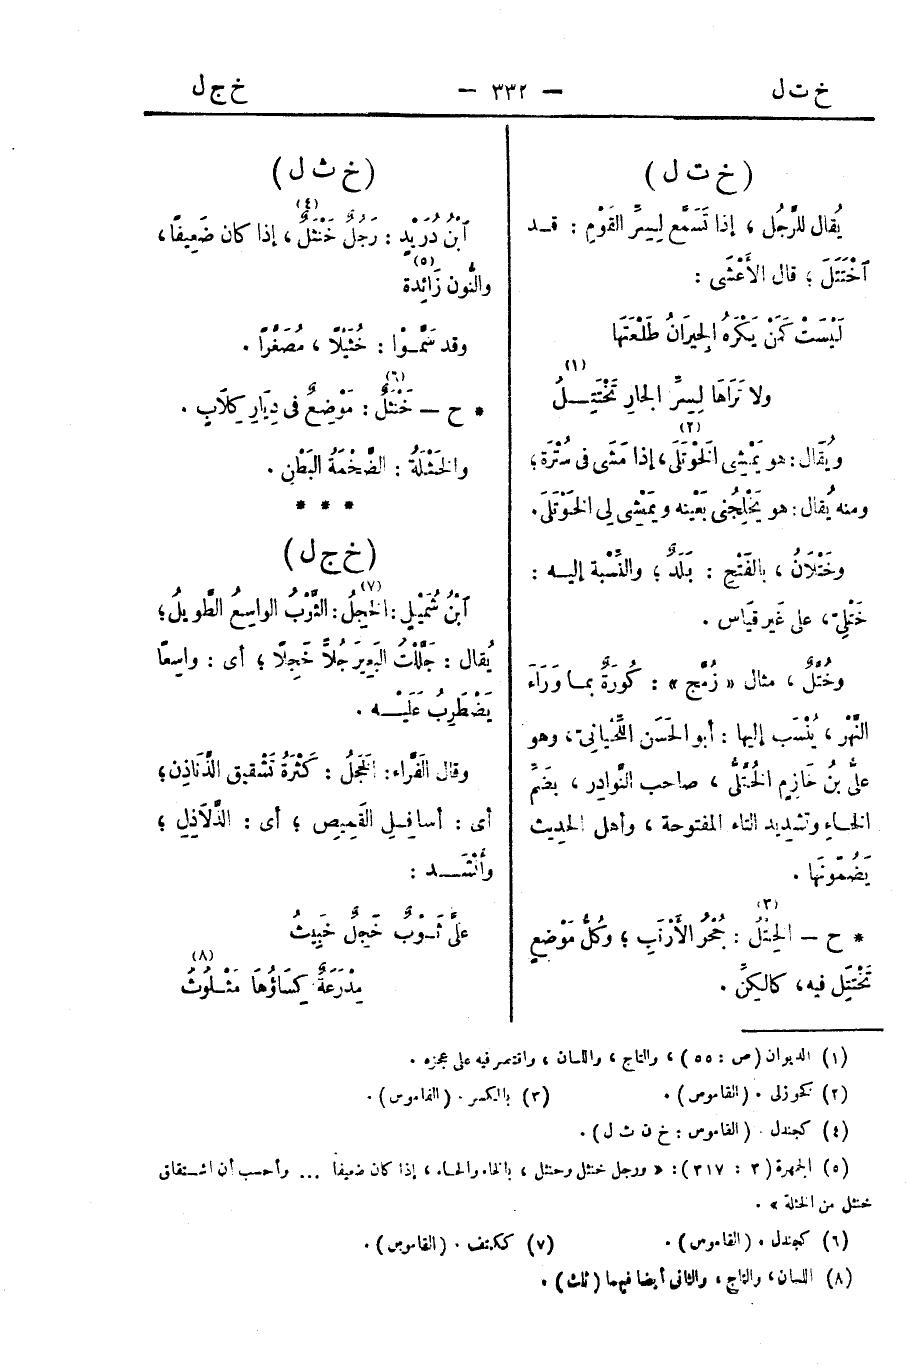 خ ت ل
— ٣٣٢ —
خ ج ل
(خ ت ل)
يُقال للرَّجُل ، إذا تَسَمَّع لِسِرِّ القَوْمِ : قـد
اَخْتَتَلَ ؛ قال الأَعْشَى :
لَيْسَتْ كَمَنْ يَكْرَهُ الجِيرَانُ طَلْعَتَها
(١)
ولا تَرَاهَا لِسِرِّ الجارِ تَخْتَتِـــلُ
(٢)
ويُقَال : هو يَمْشِى الخَوْتَلَى ، إذا مَشَى فى سُتْرَة ؛
ومنه يُقال : هو يَخْلِجُنى بَعْينه ويَمْشِى لِى الخَوْتَلَى .
وخَتْلَانُ ، بالفَتْحِ : بَلَدٌ ؛ والنِّسْبة إليـه :
خَتْلِىّ ، على غَير قِيَاس .
وخُتَّلٌ ، مثال « زُمَّج » : كُورَةٌ بمـا وَرَاءَ
النَّهْر ، يُنْسَب إليها : أبو الحَسَن اللِّحْيانِىّ ، وهو
علىُّ بنُ خَازِمٍ الخُتَّلىُّ ، صاحب النَّوادِر ، بضَمّ
الخـاءِ وتشديد التاء المفتوحة ، وأهل الحديث
يَضُمّونَها .
(٣)
* ح — الخِتْلُ : جُحْرُ الأَرْنَبِ ؛ وكُلُّ مَوْضِعٍ
تَخْتَتِل فيه ، كالكِنِّ .
(خ ث ل)
(٤)
اَبْنُ دُرَيْدٍ : رَجُلٌ خَنْثَلٌ ، إذا كان ضَعِيفًا ،
(٥)
والنُّون زَائِدة
وقد سَمَّـوْا : خُثَيْلًا ، مُصَغَّرًا .
(٦)
* ح — خَنْثَلٌ : مَوْضِعٌ فى دِيَارِ كِلَابٍ .
والخَثْلَةُ : الضَّخْمَةُ البَطْنِ .
* * *
(خ ج ل)
(٧)
اَبْنُ شُمَيْلٍ : الخَجِلُ : الثَّوْبُ الواسِعُ الطَّوِيلُ ؛
يُقال : جَلَّلْتُ البَعِيرَ جُلًّا خَجِلًا ؛ أى : واسِعًا
يَضْطَرِبُ عَلَيْـــه .
وقال الفَرَّاء : الخَجَلُ : كَثْرَةُ تَشْقيق الذَّنَاذِن ؛
أى : أسافِـلِ القَمِيص ؛ أى : الذَّلَاذِلِ ؛
وأَنْشَـــد :
علىَّ ثَـوْبٌ خَجِلٌ خَبِيثُ
(٨)
مِدْرَعَةٌ كِسَاؤُهَا مَثْـلُوثُ
(١) الديوان (ص : ٥٥) ، والتاج ، واللسان ، واقتصر فيه على عجزه .
(٢) كخوزلى . (القاموس) . (٣) بالكسر . (القاموس) .
(٤) كجندل . (القاموس : خ ن ث ل) .
(٥) الجمهرة (٣ : ٣١٧) : « ورجل خنثل وحنثل ، بالخاء والحـاء ، إذا كان ضعيفا ... وأحسب أن اشـتقاق
خنثل من الخثلة » .
(٦) كجندل . (القاموس) . (٧) ككتف . (القاموس) .
(٨) اللسان ، والتاج ، والثانى أيضا فيهما (ثلث) .